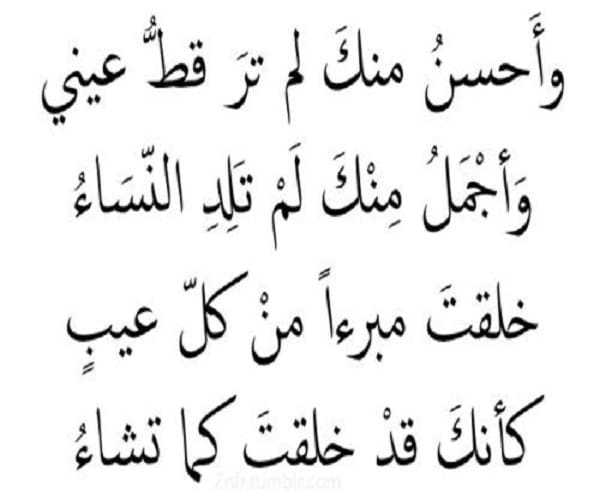 وأَحسنُ منكَ لم ترَ قطُّ عيني
وَأجْمَلُ مِنْكَ لَمْ تَلِدِ النّسَاءُ
خلقتَ مبرءاً منْ كلّ عيبٍ
كأنكَ قدْ خلقتَ كما تشاءُ
Znfr.tumblr.com